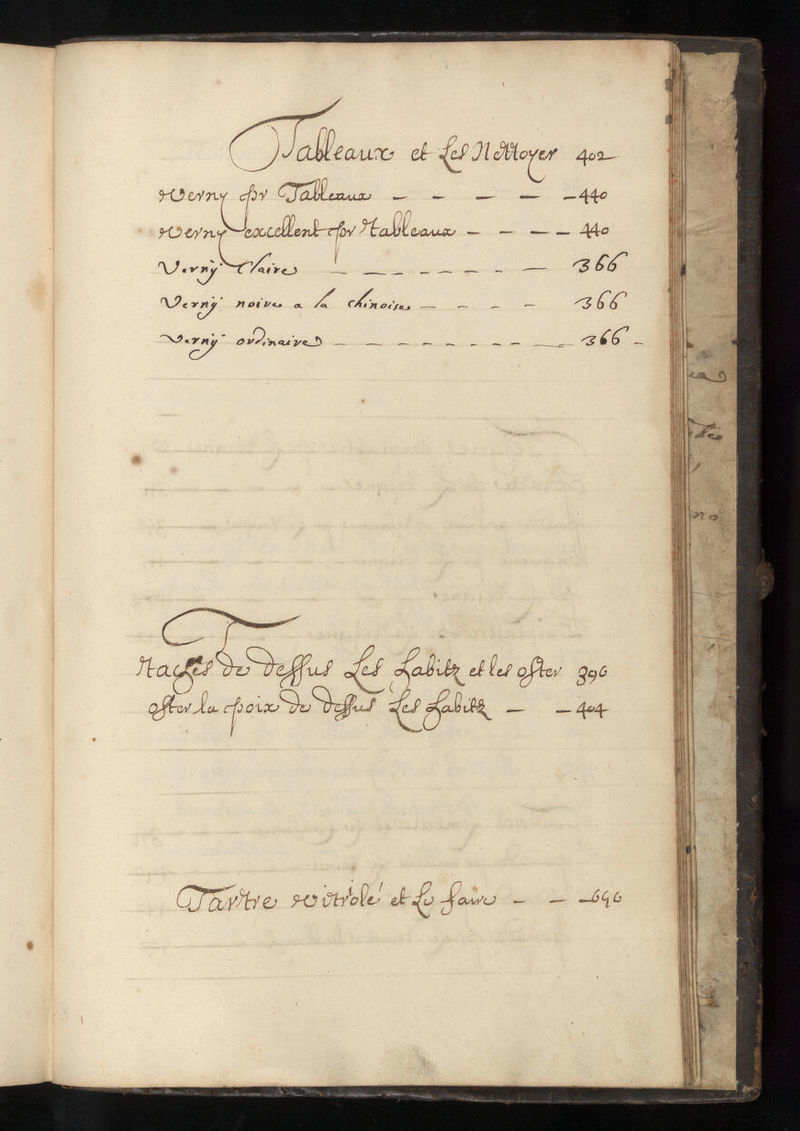 Tableaux et Les Nettoyer 402
Verny pr Tableaux — — — — — 440
Verny excellent pr tableaux — — — — 440
Verny Claire — — — — — — — — 366
Verny noire a la chinoise — — — — 366
Verny ordinaire — — — — — — — — — 366 —
Taches de dessus Les habitz et les oster 396
oster la poix de dessus Les habitz — — 404
Tartre vitriolé et Le faire — — — 696